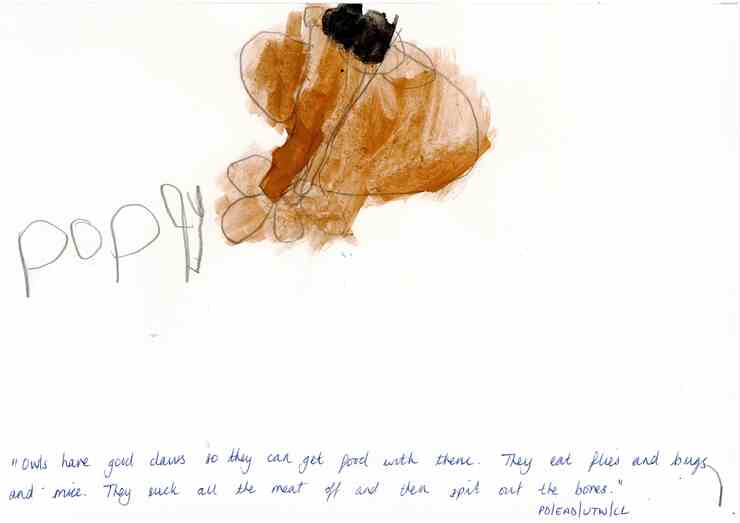 poppy
"Owls have good claws so they can get food with them. They eat flies and bugs
and mice. They suck all the meat off and then spit out the bones."
PD/EAD/UTW/CL